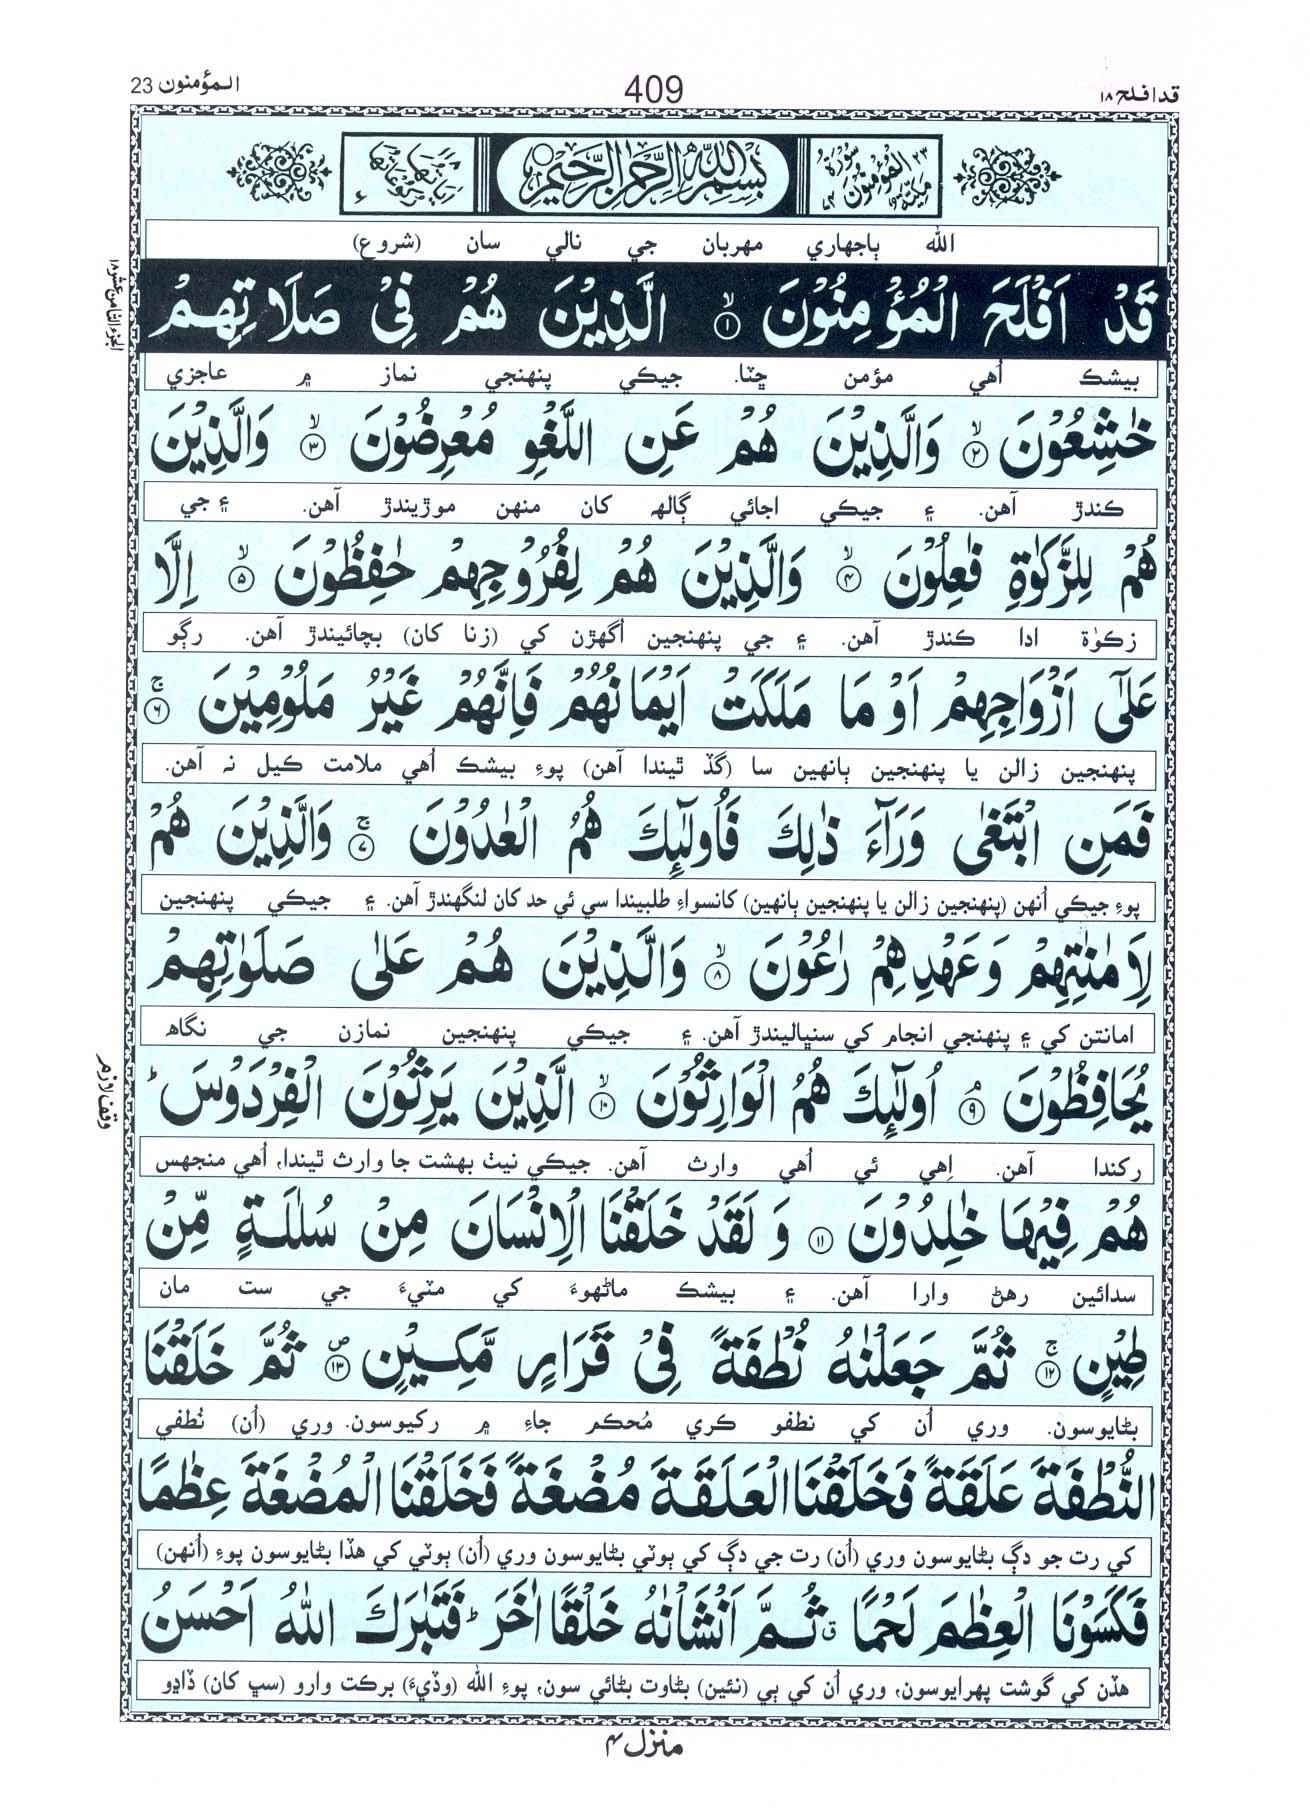 المؤمنون 23
409
قد افلح ١٨
سُوْرَةُ الْمُؤْمِنُوْنَ مَكِّيَّةٌ
بِسْمِ اللّٰهِ الرَّحْمٰنِ الرَّحِيْمِ
اٰيَاتُهَا رُكُوْعَاتُهَا
الله ٻاجهاري مهربان جي نالي سان (شروع)
الجزء الثامن عشر ١٨
قَدْ اَفْلَحَ الْمُؤْمِنُوْنَ ۙ﴿١﴾ الَّذِيْنَ هُمْ فِيْ صَلَاتِهِمْ
بيشڪ اُهي مؤمن ڇٽا. جيڪي پنهنجي نماز ۾ عاجزي
خٰشِعُوْنَ ۙ﴿٢﴾ وَالَّذِيْنَ هُمْ عَنِ اللَّغْوِ مُعْرِضُوْنَ ۙ﴿٣﴾ وَالَّذِيْنَ
ڪندڙ آهن. ۽ جيڪي اجائي ڳالھ کان منهن موڙيندڙ آهن. ۽ جي
هُمْ لِلزَّكٰوةِ فٰعِلُوْنَ ۙ﴿٤﴾ وَالَّذِيْنَ هُمْ لِفُرُوْجِهِمْ حٰفِظُوْنَ ۙ﴿٥﴾ اِلَّا
زڪوٰة ادا ڪندڙ آهن. ۽ جي پنهنجين اُگهڙن کي (زنا کان) بچائيندڙ آهن. رڳو
عَلٰٓى اَزْوَاجِهِمْ اَوْ مَا مَلَكَتْ اَيْمَانُهُمْ فَاِنَّهُمْ غَيْرُ مَلُوْمِيْنَ ۚ﴿٦﴾
پنهنجين زالن يا پنهنجين ٻانهين سا (گڏ ٿيندا آهن) پوءِ بيشڪ اُهي ملامت ڪيل نہ آهن.
فَمَنِ ابْتَغٰى وَرَآءَ ذٰلِكَ فَاُولٰٓئِكَ هُمُ الْعٰدُوْنَ ۚ﴿٧﴾ وَالَّذِيْنَ هُمْ
پوءِ جيڪي اُنهن (پنهنجين زالن يا پنهنجين ٻانهين) کانسواءِ طلبيندا سي ئي حد کان لنگهندڙ آهن. ۽ جيڪي پنهنجين
لِاَمٰنٰتِهِمْ وَعَهْدِهِمْ رٰعُوْنَ ۙ﴿٨﴾ وَالَّذِيْنَ هُمْ عَلٰى صَلَوٰتِهِمْ
امانتن کي ۽ پنهنجي انجام کي سنڀاليندڙ آهن. ۽ جيڪي پنهنجين نمازن جي نگاھ
وقف لازم
يُحَافِظُوْنَ ۘ﴿٩﴾ اُولٰٓئِكَ هُمُ الْوَارِثُوْنَ ۙ﴿١٠﴾ الَّذِيْنَ يَرِثُوْنَ الْفِرْدَوْسَ ؕ
رکندا آهن. اِهي ئي اُهي وارث آهن. جيڪي نيٺ بهشت جا وارث ٿيندا، اُهي منجهس
هُمْ فِيْهَا خٰلِدُوْنَ ﴿١١﴾ وَلَقَدْ خَلَقْنَا الْاِنْسَانَ مِنْ سُلٰلَةٍ مِّنْ
سدائين رهڻ وارا آهن. ۽ بيشڪ ماڻهوءَ کي مٽيءَ جي ست مان
طِيْنٍ ۚ﴿١٢﴾ ثُمَّ جَعَلْنٰهُ نُطْفَةً فِيْ قَرَارٍ مَّكِيْنٍ ۪﴿١٣﴾ ثُمَّ خَلَقْنَا
بڻايوسون. وري اُن کي نطفو ڪري مُحڪم جاءِ ۾ رکيوسون. وري (اُن) نُطفي
النُّطْفَةَ عَلَقَةً فَخَلَقْنَا الْعَلَقَةَ مُضْغَةً فَخَلَقْنَا الْمُضْغَةَ عِظٰمًا
کي رت جو دڳ بڻايوسون وري (اُن) رت جي دڳ کي ٻوٽي بڻايوسون وري (اُن) ٻوٽي کي هڏا بڻايوسون پوءِ (اُنهن)
فَكَسَوْنَا الْعِظٰمَ لَحْمًا ٯ ثُمَّ اَنْشَاْنٰهُ خَلْقًا اٰخَرَ ؕ فَتَبٰرَكَ اللّٰهُ اَحْسَنُ
هڏن کي گوشت پهرايوسون، وري اُن کي ٻي (نئين) بڻاوت بڻائي سون، پوءِ الله (وڏيءَ) برڪت وارو (سڀ کان) ڏاڍو
منزل ۴